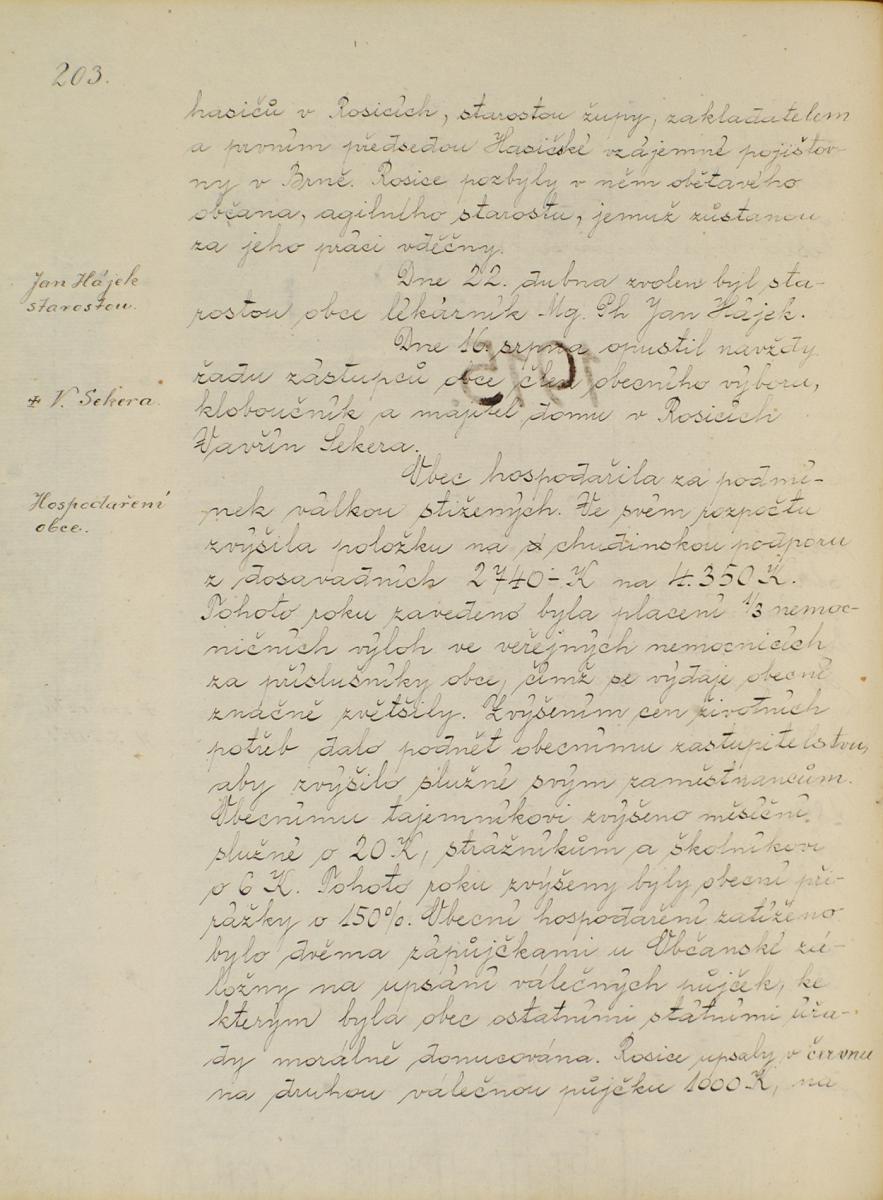 203.
hasičů v Rosicích, starostou župy, zakladatelem
a prvním předsedou Hasičské vzájemné pojišťov-
ny v Brně. Rosice pozbyly v něm obětavého
občana, agilního starostu, jemuž zůstanou
za jeho práci vděčny.
Jan Hájek
starostou.
Dne 22. dubna zvolen byl sta-
rostou obce lékárník Mg. Ph Jan Hájek.
Dne 16. srpna opustil navždy
řadu zástupců obce člen obecního výboru,
✠ V. Sekera.
kloboučník a majitel domu v Rosicích
Vavřín Sekera.
Obec hospodařila za podmí-
Hospodaření
obce.
nek válkou stížených. Ve svém rozpočtu
zvýšila položku na chudinskou podporu
z dosavadních 2740·- K na 4.350 K.
Tohoto roku zavedeno byla placení 1/3 nemoc-
ničních výloh ve veřejných nemocnicích
za příslušníky obce, čímž se výdaje obecné
značně zvětšily. Zvýšením cen životních
potřeb dalo podnět obecnímu zastupitelstvu,
aby zvýšilo služné svým zaměstnancům.
Obecnímu tajemníkovi zvýšeno měsíční
služné o 20 K, strážníkům a školníkovi
o 6 K. Tohoto roku zvýšeny byly obecní při-
rážky o 150%. Obecní hospodaření zatíženo
bylo dvěma zápůjčkami u Občanské zá-
ložny na upsání válečných půjček, ke
kterým byla obec ostatními státními úřa-
dy morálně donucována. Rosice upsaly v červnu
na druhou válečnou půjčku 1000 K, na